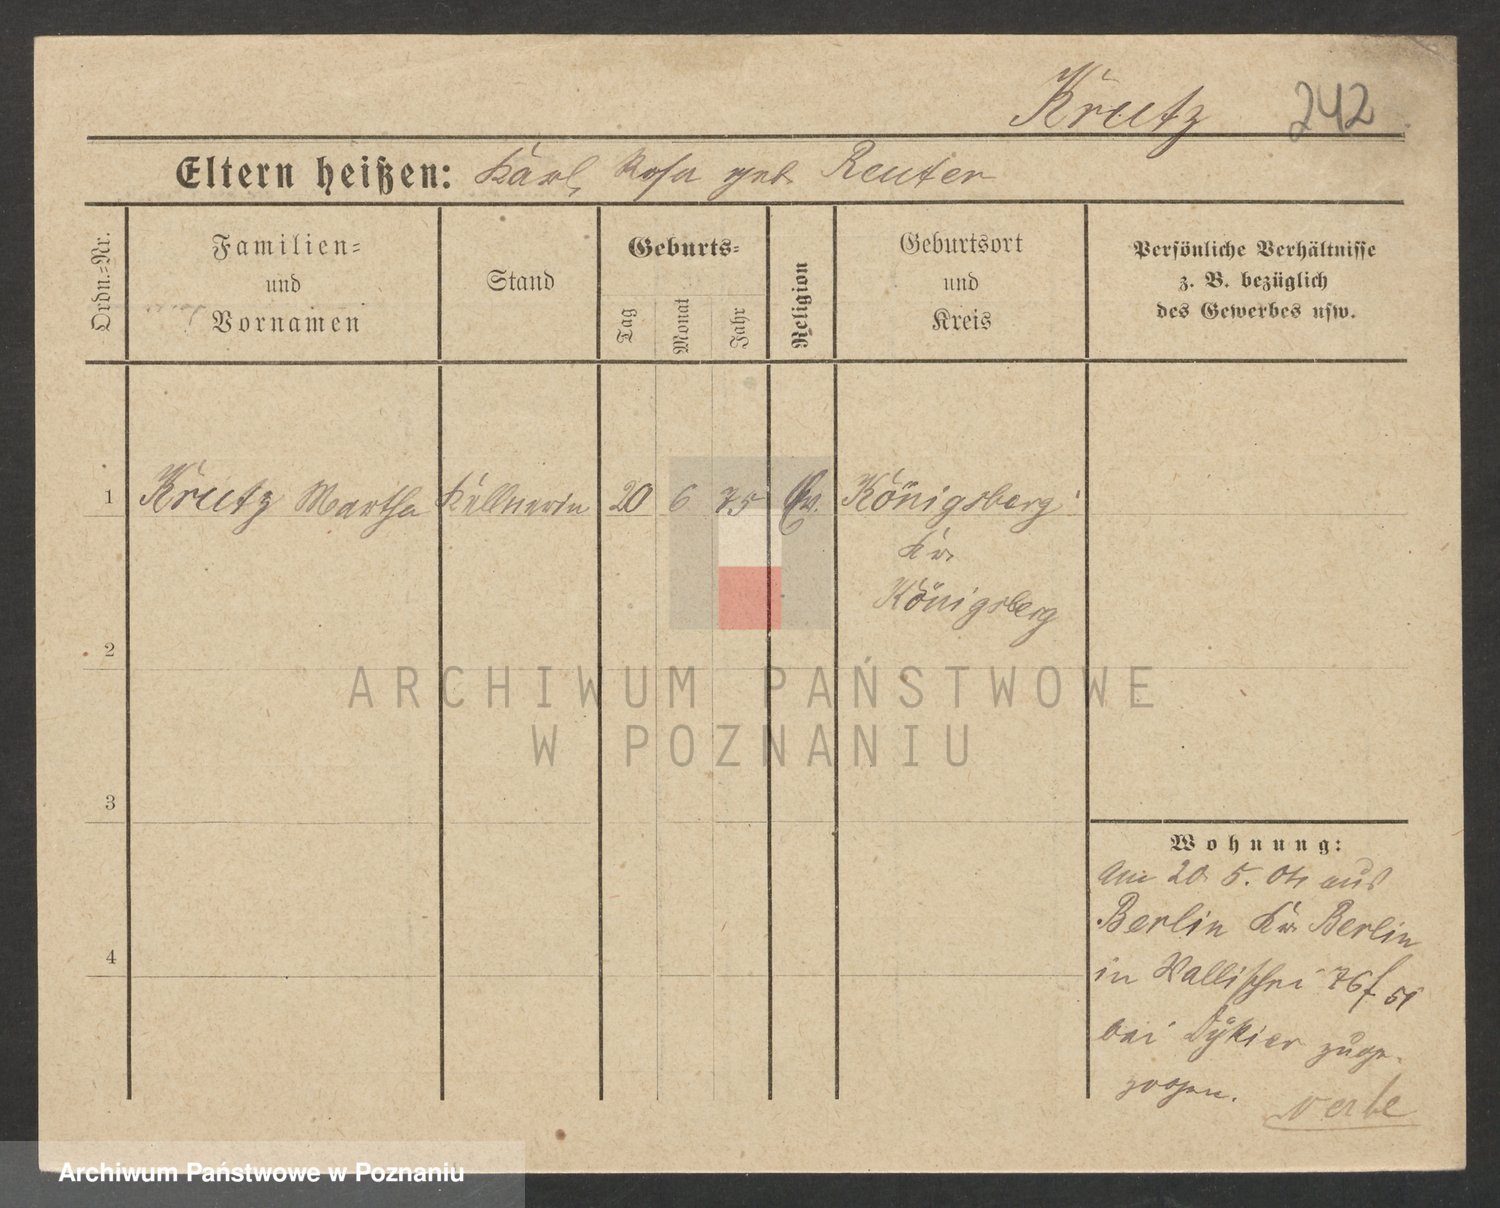 Krutz 242
Eltern heißen: Karl, Rosa geb. Reuter
Ordn.=Nr.
Familien=
und
Vornamen
Stand
Geburts=
Tag
Monat
Jahr
Religion
Geburtsort
und
Kreis
Persönliche Verhältnisse
z. B. bezüglich
des Gewerbes usw.
1 Krutz Martha Kellnerin 20 6 75 Ev. Königsberg
Kr.
Königsberg
2
ARCHIWUM PAŃSTWOWE
W POZNANIU
3
4
Wohnung:
Am 20. 5. 04 aus
Berlin Kr. Berlin
in Wallischei 76/51
bei zuge-
zogen.
Archiwum Państwowe w Poznaniu